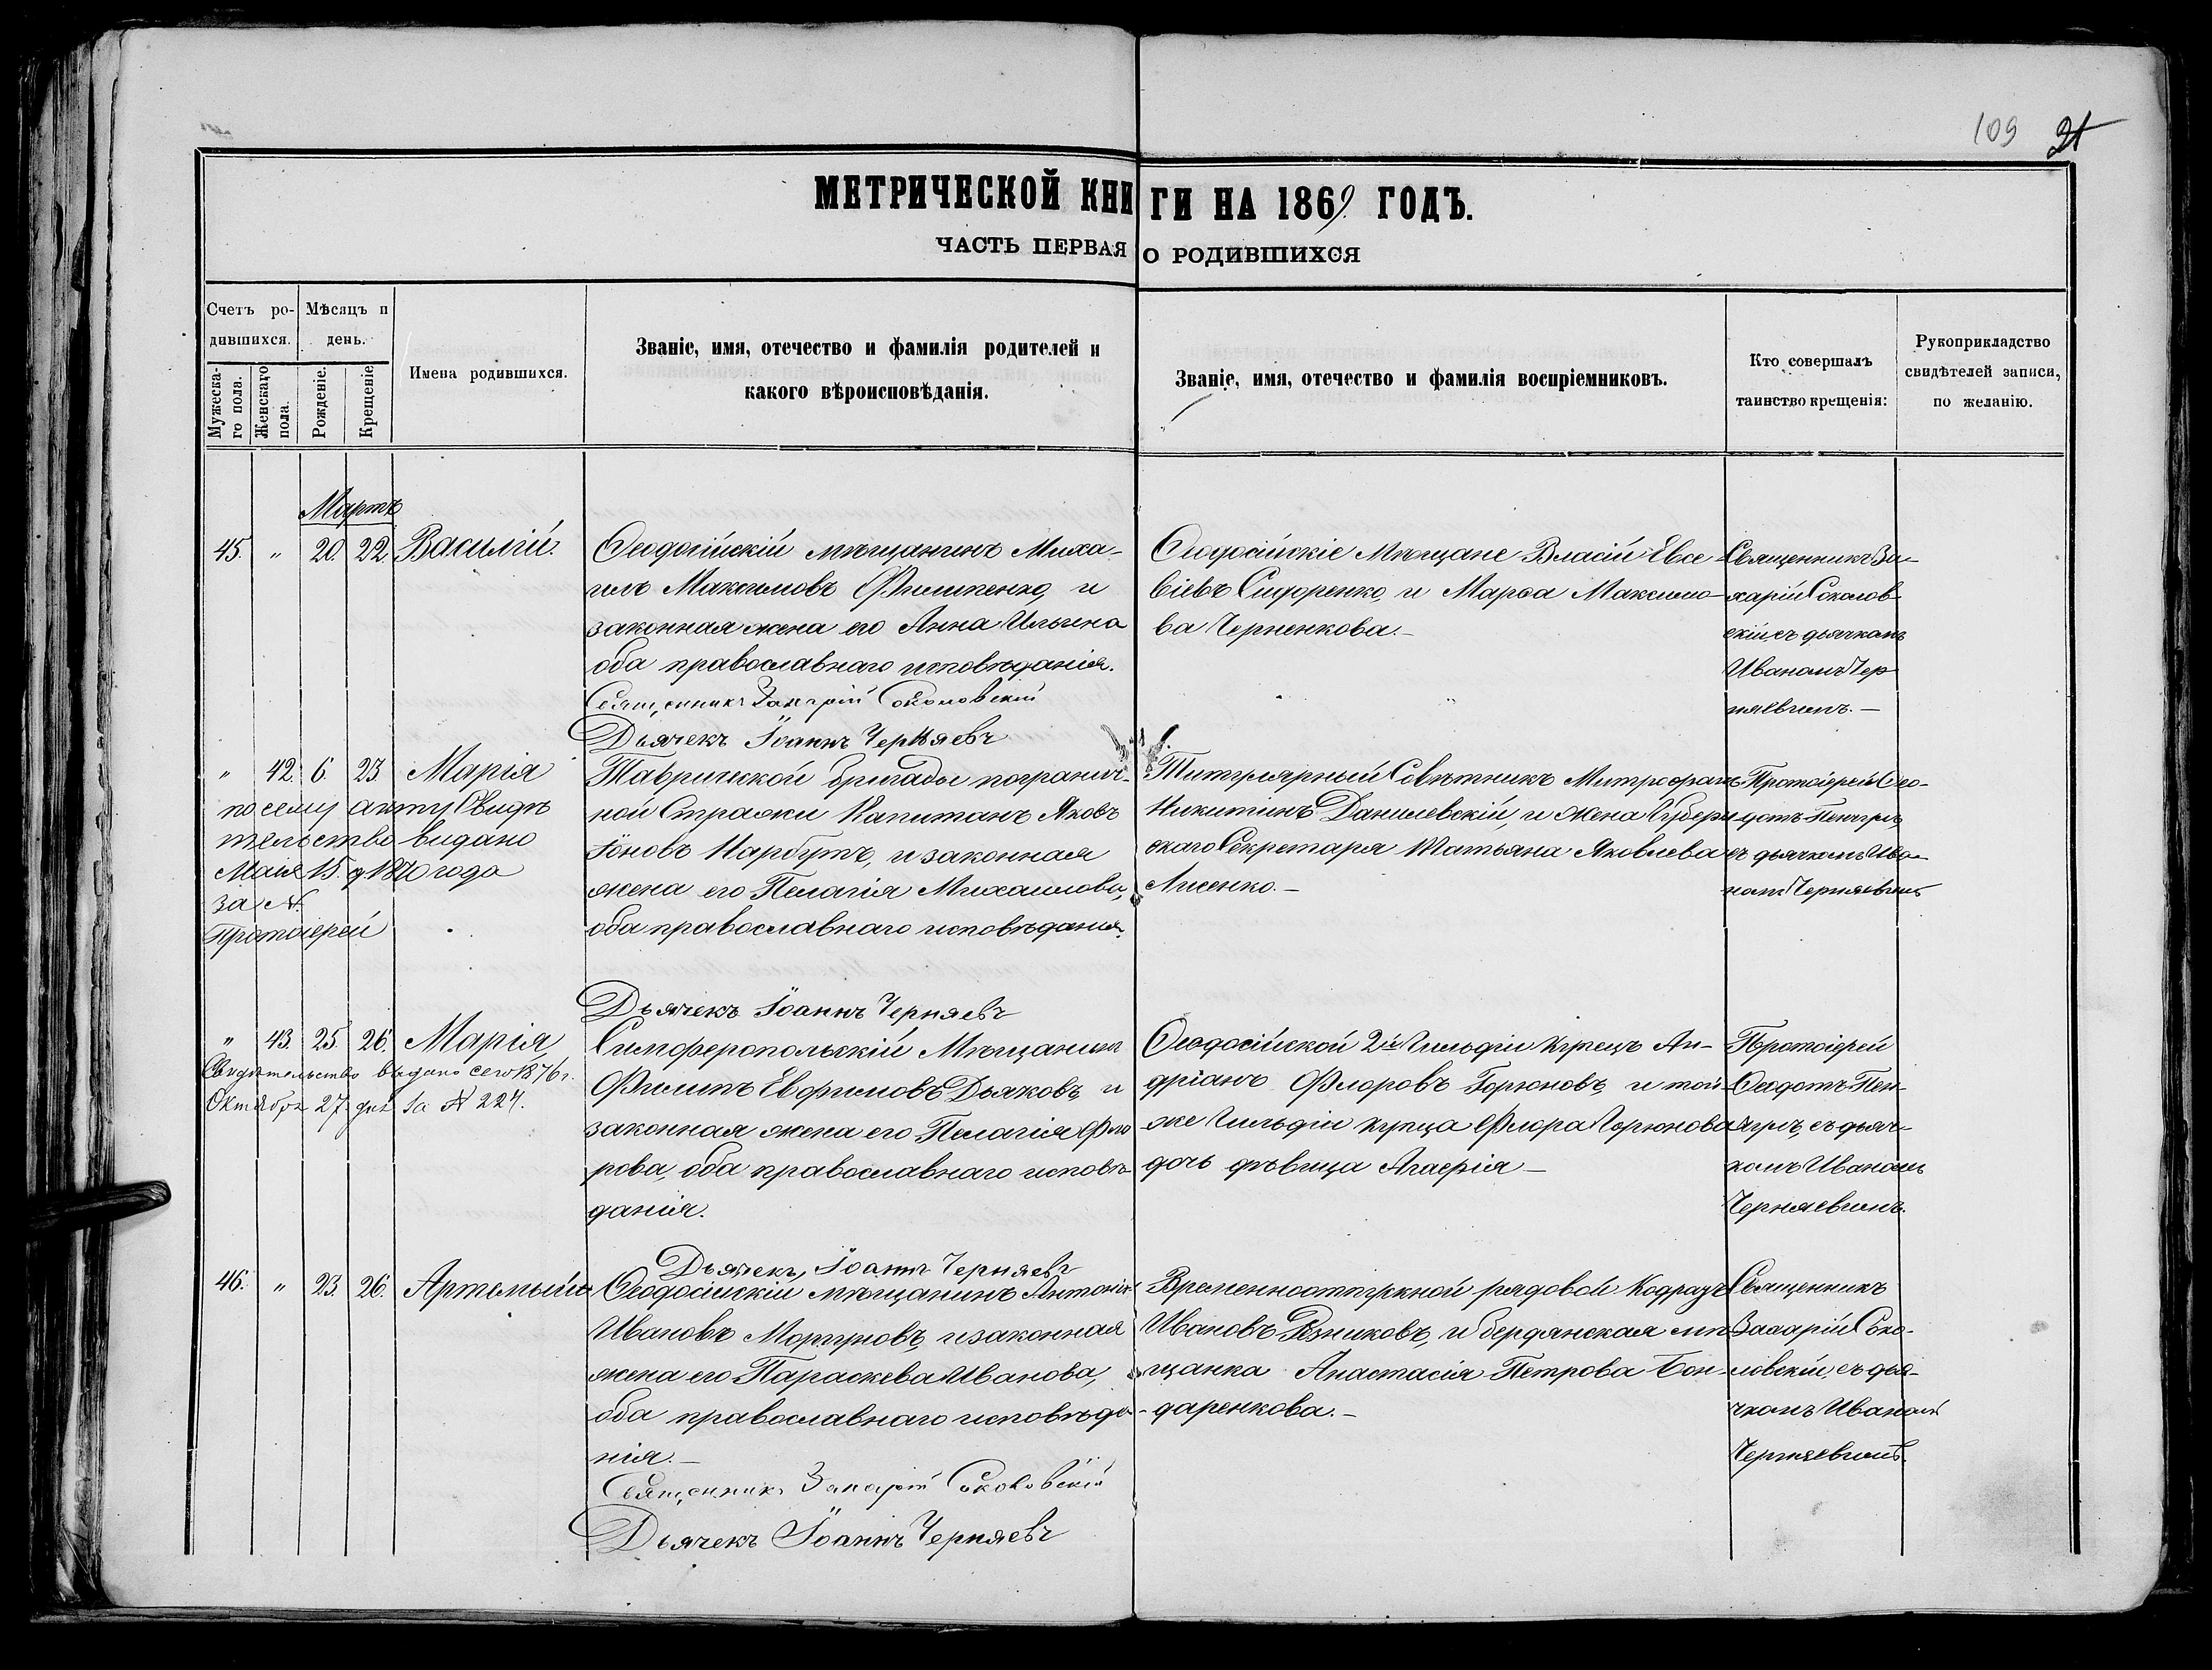 109 21
МЕТРИЧЕСКОЙ КНИГИ НА 1869 ГОДЪ.
ЧАСТЬ ПЕРВАЯ О РОДИВШИХСЯ
Счетъ родившихся.
Мужеска-
го пола.
Женскаго
пола.
Мѣсяцъ и
день.
Рожденіе.
Крещеніе
Имена родившихся.
Званіе, имя, отечество и фамилія родителей и
какого вѣроисповѣданія.
Званіе, имя, отечество и фамилія воспріемниковъ.
Кто совершалъ
таинство крещенія:
Рукоприкладство
свидѣтелей записи,
по желанію.
Мартъ
45. " 20. 22. Василій.
Ѳеодосійскій мѣщанинъ Миха-
илъ Максимовъ Филипенко, и
законная жена его Анна Ильина
оба православнаго исповѣданія.
Священникъ Захарій Соколовскій
Дьячекъ Іоаннъ Черняевъ
Ѳеодосійскіе Мѣщане Власій Евсе-
віевъ Сидоренко, и Марѳа Максимо-
ва Черненкова.-
Священникъ За-
харій Соколов-
скій съ дьячкомъ
Иваномъ Чер
няевимъ.-
" 42. 6. 23 Марія
по сему акту Свидѣ
тельство видано
Маія 15. д 1870 года
за №.
Протоіерей
Таврической бригады погранич-
ной Стражи Капитанъ Яковъ
Іоновъ Нарбутъ, и законная
жена его Пелагія Михаилова,
оба православнаго исповѣданія.
Дьячекъ Іоаннъ Черняевъ
Титулярный Совѣтникъ Митрофанъ
Никитинъ Данилевскій, и жена Губерн
скаго Секретаря Татьяна Яковлева
Лисенко.-
Протоіерей Ѳео-
дотъ
съ дьячкомъ Ива-
номъ Черняевимъ
" 43. 25. 26. Марія
Свидѣтельство выдано сего 1876 г.
Октября 27 дня за № 224.
Симферопольскій Мѣщанинъ
Филипъ Евфимовъ Дьяковъ и
законная жена его Пелагія Фло
рова, оба православнаго исповѣ-
данія.
Дьячекъ, Іоаннъ Черняевъ
Ѳеодосійской 2й Гильдіи купецъ Ан-
дріанъ Флоровъ Горюновъ, и той-
же Гильдіи купца Флора Горюнова
дочь дѣвица Агаѳія-
Протоіерей
Ѳеодотъ
съ дьяч-
комъ Иваномъ
Черняевимъ.
46. " 23. 26. Артемый
Ѳеодосійскій мѣщанинъ Антоній
Ивановъ Моргуновъ, и законная
жена его Параскева Иванова,
оба православнаго исповѣда-
нія.-
Священникъ Захарій Соколовскій
Дьячекъ Іоаннъ Черняевъ
Временноотпускной рядовой Кодратъ
Ивановъ Рѣзниковъ, и бердянская мѣ
щанка Анастасія Петрова Бон-
даренкова.-
Священникъ
Захарій Соко-
ловскій, съ дья-
чкомъ Иваномъ
Черняевимъ.